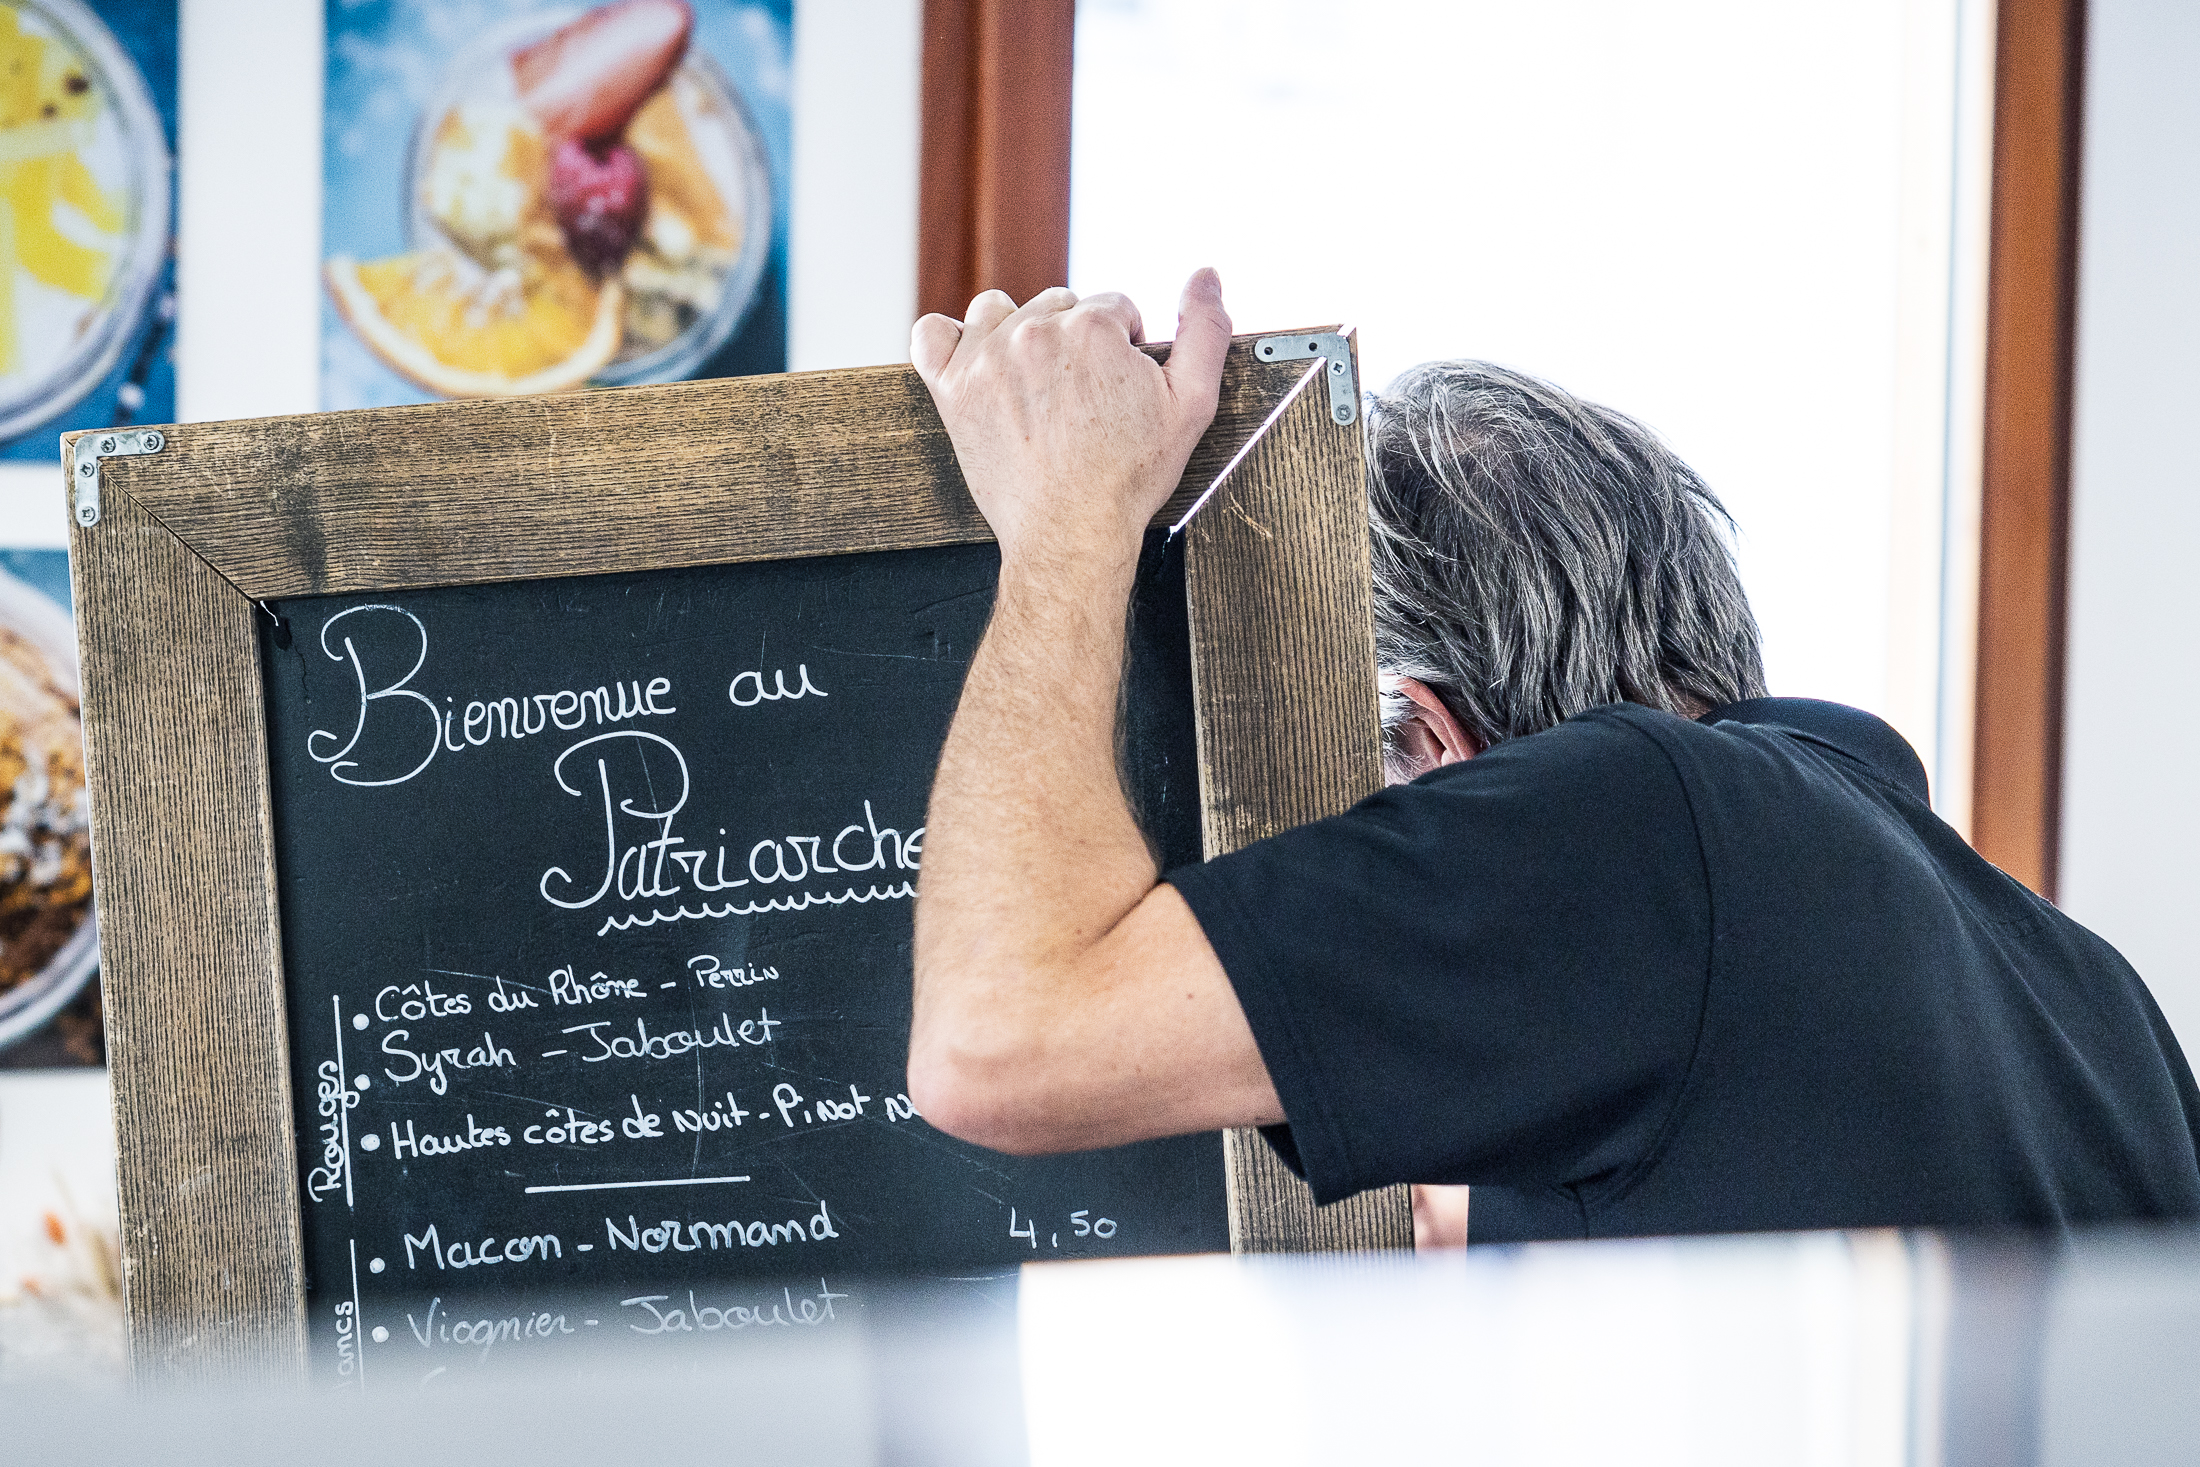 Bienvenue au
Patriarche
Rouges
Côtes du Rhône - Perrin
Syrah - Jaboulet
Hautes côtes de Nuit - Pinot
Macon - Normand 4,50
Viognier - Jaboulet